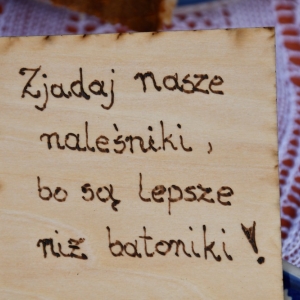 Zjadaj nasze
naleśniki,
bo są lepsze
niż batoniki!